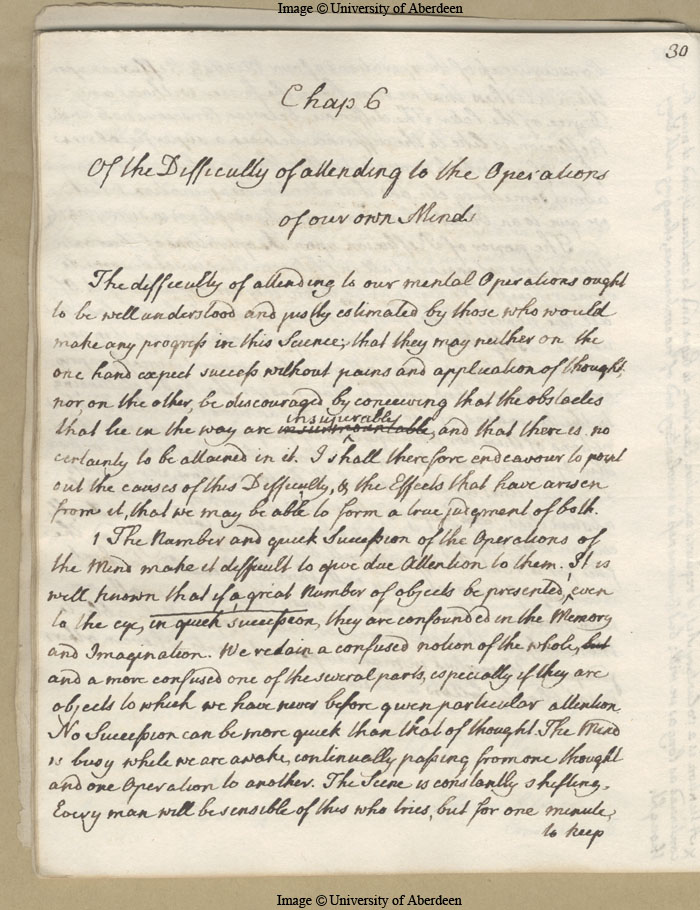 Image © University of Aberdeen
30
Chap 6
Of the Difficulty of attending to the Operations
of our own Minds
The difficulty of attending to our mental Operations ought
to be well understood and justly estimated by those who would
make any progress in this Science; that they may neither on the
one hand expect success without pains and application of thought,
nor, on the other, be discouraged by conceiving that the obstacles
insuperable
that lie in the way are insurmountable, and that there is no
certainty to be attained in it. I shall therefore endeavour to point
out the causes of this Difficulty, & the Effects that have arisen
from it, that we may be able to form a true judgment of both.
1 The Number and quick Succession of the Operations of
the Mind make it difficult to give due Attention to them. It is
well known that if a great Number of objects be presented, even
to the eye, in quick succession, they are confounded in the Memory
and Imagination. We retain a confused notion of the whole, but
and a more confused one of the several parts, especially if they are
objects to which we have never before given particular attention
No Succession can be more quick than that of thought. The Mind
is busy while we are awake, continually passing from one thought
and one Operation to another. The Scene is constantly shifting.
Every man will be sensible of this who tries, but for one minute,
to keep
Image © University of Aberdeen